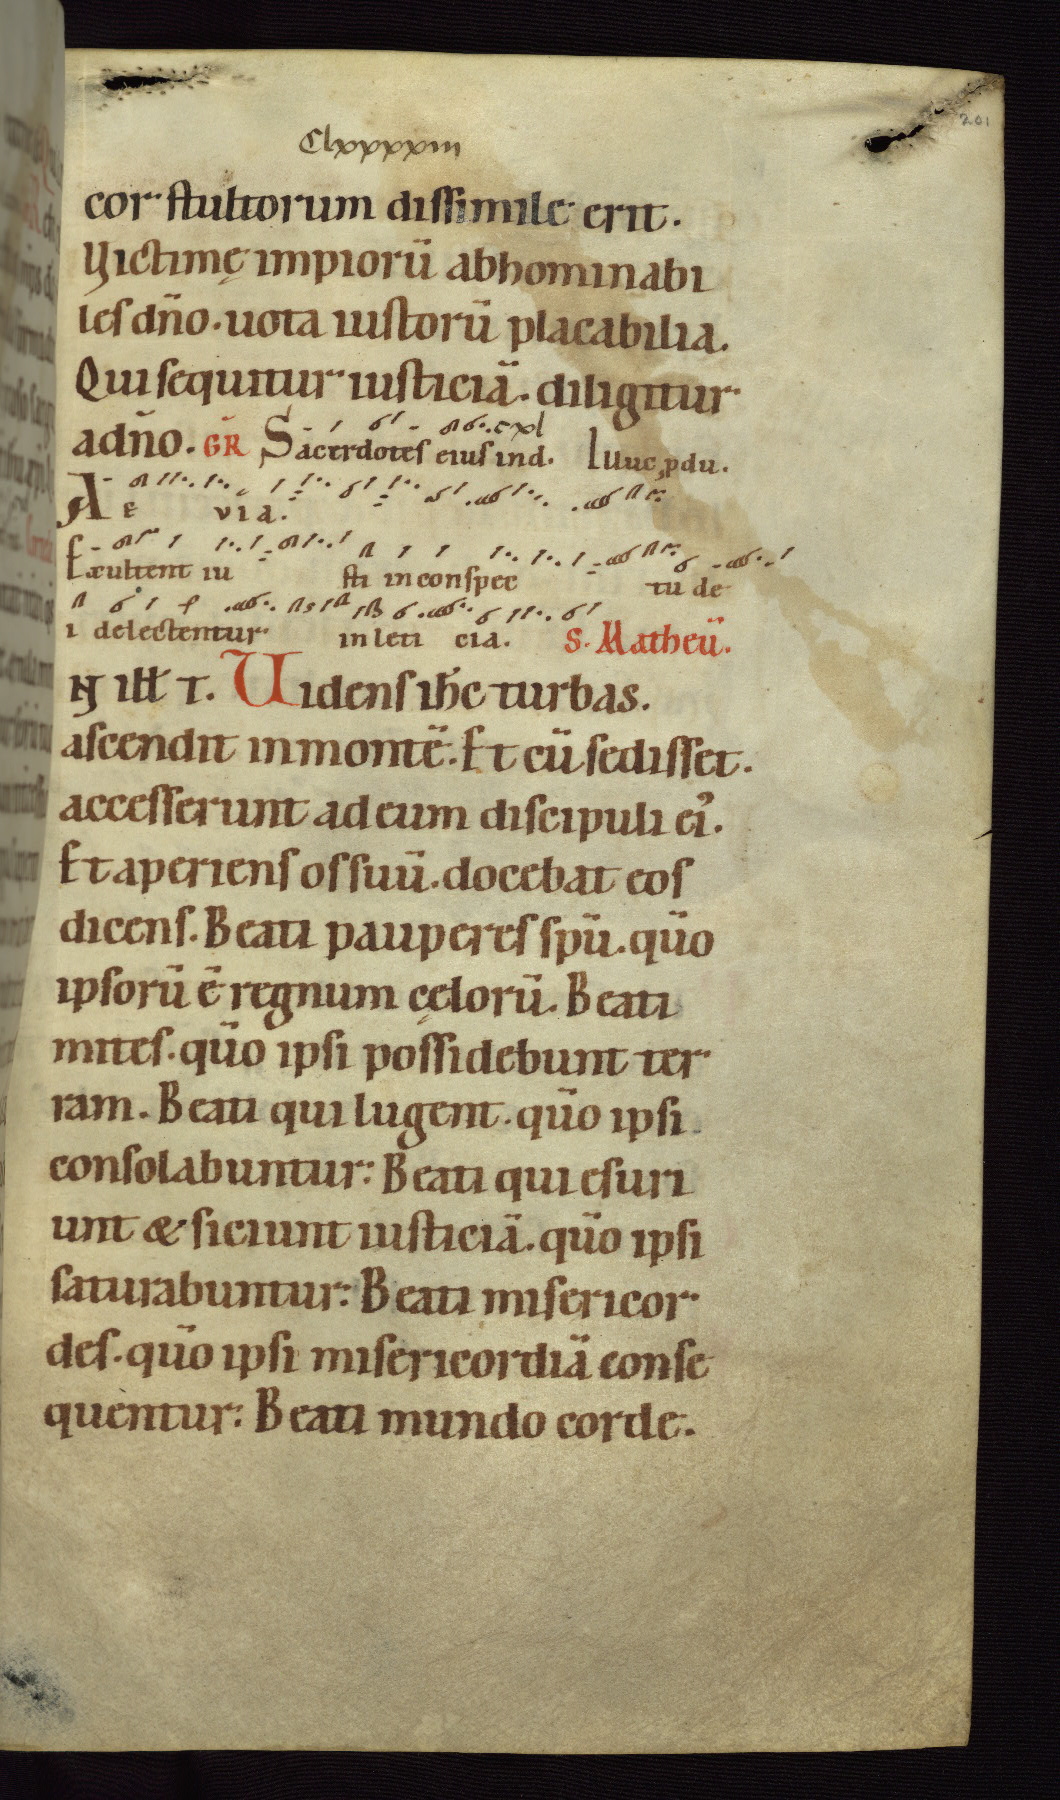 Clxxxxiii
201
cor stultorum dissimile erit.
Victimę impiorū abhominabi
les dño. uota iustorū placabilia.
Qui sequitur iusticiā. diligitur
a dño. GR Sacerdotes eius ind. cxl
A E VIA.
Exultent iu sti in conspec tu de
i delectentur in leti cia. S. Matheū.
IN ill T. Uidens ihc turbas.
ascendit in montē. Et cū sedisset.
accesserunt ad eum discipuli ei'.
Et aperiens os suū. docebat eos
dicens. Beati pauperes spū. qūo
ipsorū ē regnum cęlorū. Beati
mites. qūo ipsi possidebunt ter
ram. Beati qui lugent. qūo ipsi
consolabuntur: Beati qui esuri
unt & siciunt iusticiā. qūo ipsi
saturabuntur: Beati misericor
des. qūo ipsi misericordiā conse
quentur: Beati mundo corde.